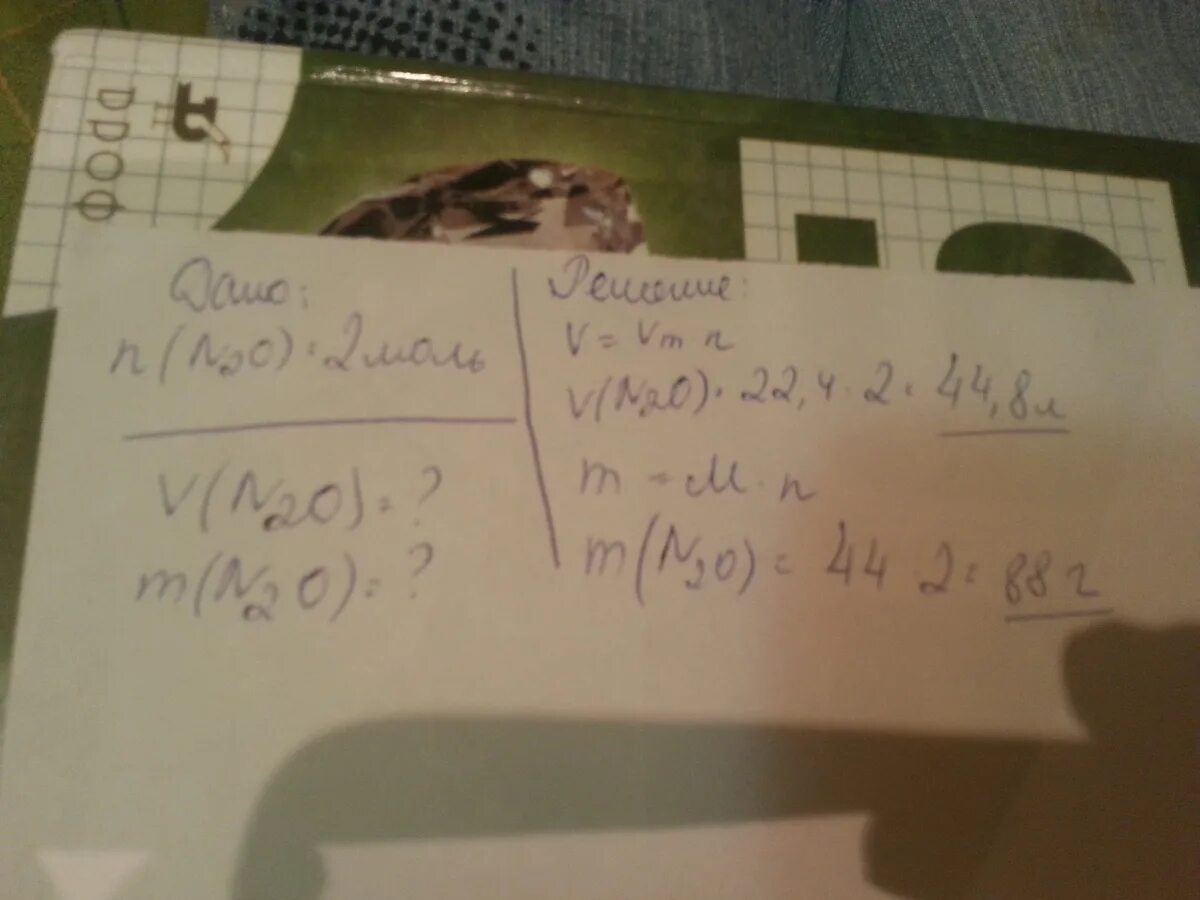 Дано:
n(N2O)=2моль
V(N2O)=?
m(N2O)=?
Решение:
V=Vm n
V(N2O)=22,4·2=44,8л
m=M·n
m(N2O)=44·2=88г